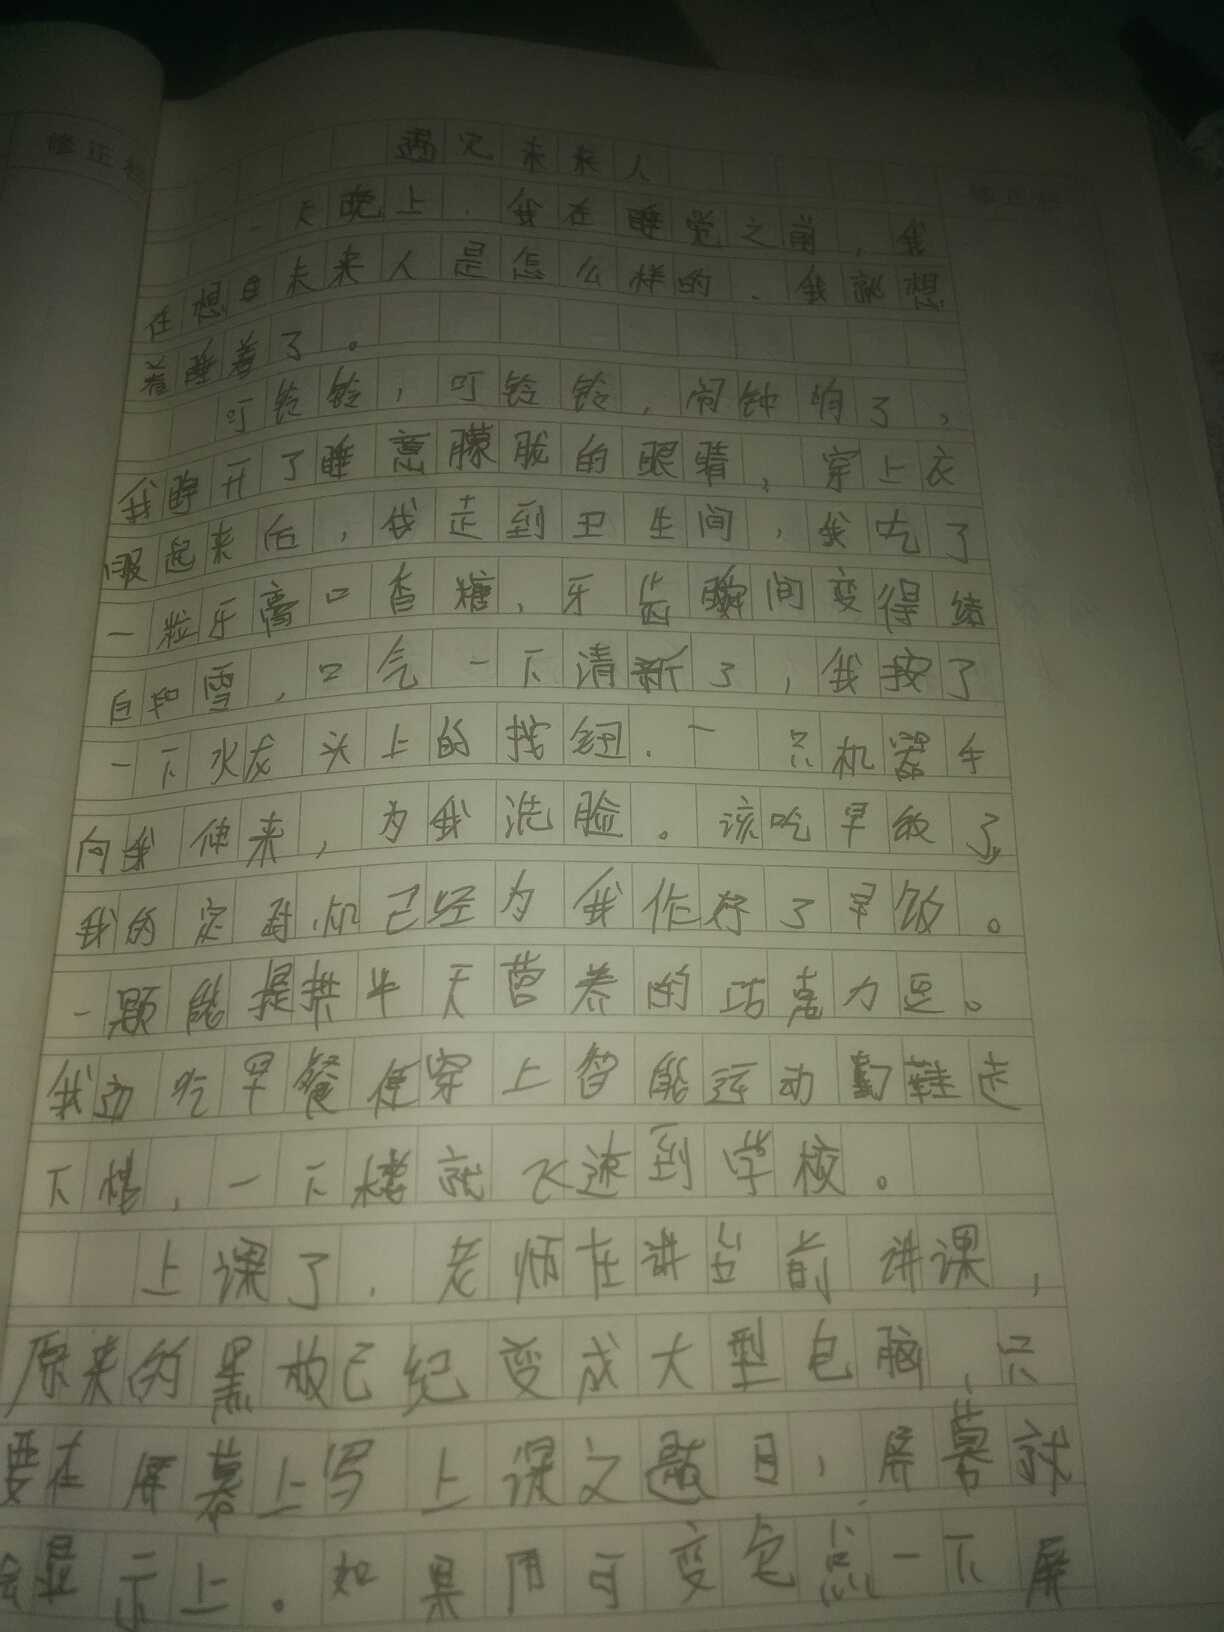 修正栏
修正栏
遇见未来人
一天晚上,我在睡觉之前,我
在想自未来人是怎么样的、我就想
着睡着了。
叮铃铃,叮铃铃,闹钟响了,
我睁开了睡意朦胧的眼睛,穿上衣
服起来后,我走到卫生间,我吃了
一粒牙膏口香糖,牙齿瞬间变得
白如雪,口气一下清新了,我按了
一下水龙头上的按钮.一只机器手
向我伸来,为我洗脸。该吃早饭了,
我的定时机已经为我作好了早饭。
一颗能提拱半天营养的巧克力豆。
我边吃早餐便穿上智能运动鞋走
下楼,一下楼就飞速到学校。
上课了,老师在讲台前讲课,
原来的黑板已纪变成大型包脑,只
要在屏幕上写上课文题目,屏幕就
会显示上。如果用可变色点一下屏